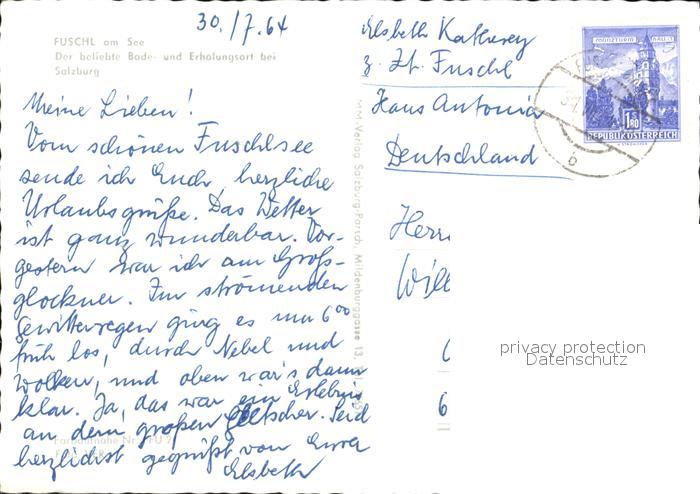 30./7.64
FUSCHL am See
Der beliebte Bade- und Erholungsort bei
Salzburg
Meine Lieben!
Vom schönen Fuschlsee
sende ich Euch herzliche
Urlaubsgrüße. Das Wetter
ist ganz wunderbar. Vor-
gestern war ich am Groß-
glockner. Im strömenden
Gewitterregen ging es um 6⁰⁰
früh los, durch Nebel und
Wolken, und oben war's dann
klar. Ja, das war ein Erlebnis
an dem großen Gletscher. Seid
herzlichst gegrüßt von Eurer
Elsbeth
M.M.-Verlag Salzburg-Parsch, Mildenburggasse 13,
Elsbeth
z. Zt. Fuschl
Haus Antonia
Deutschland
MÜNZTURM HALL
1.80
REPUBLIK ÖSTERREICH
6
Herr
Will
6
privacy protection
Datenschutz